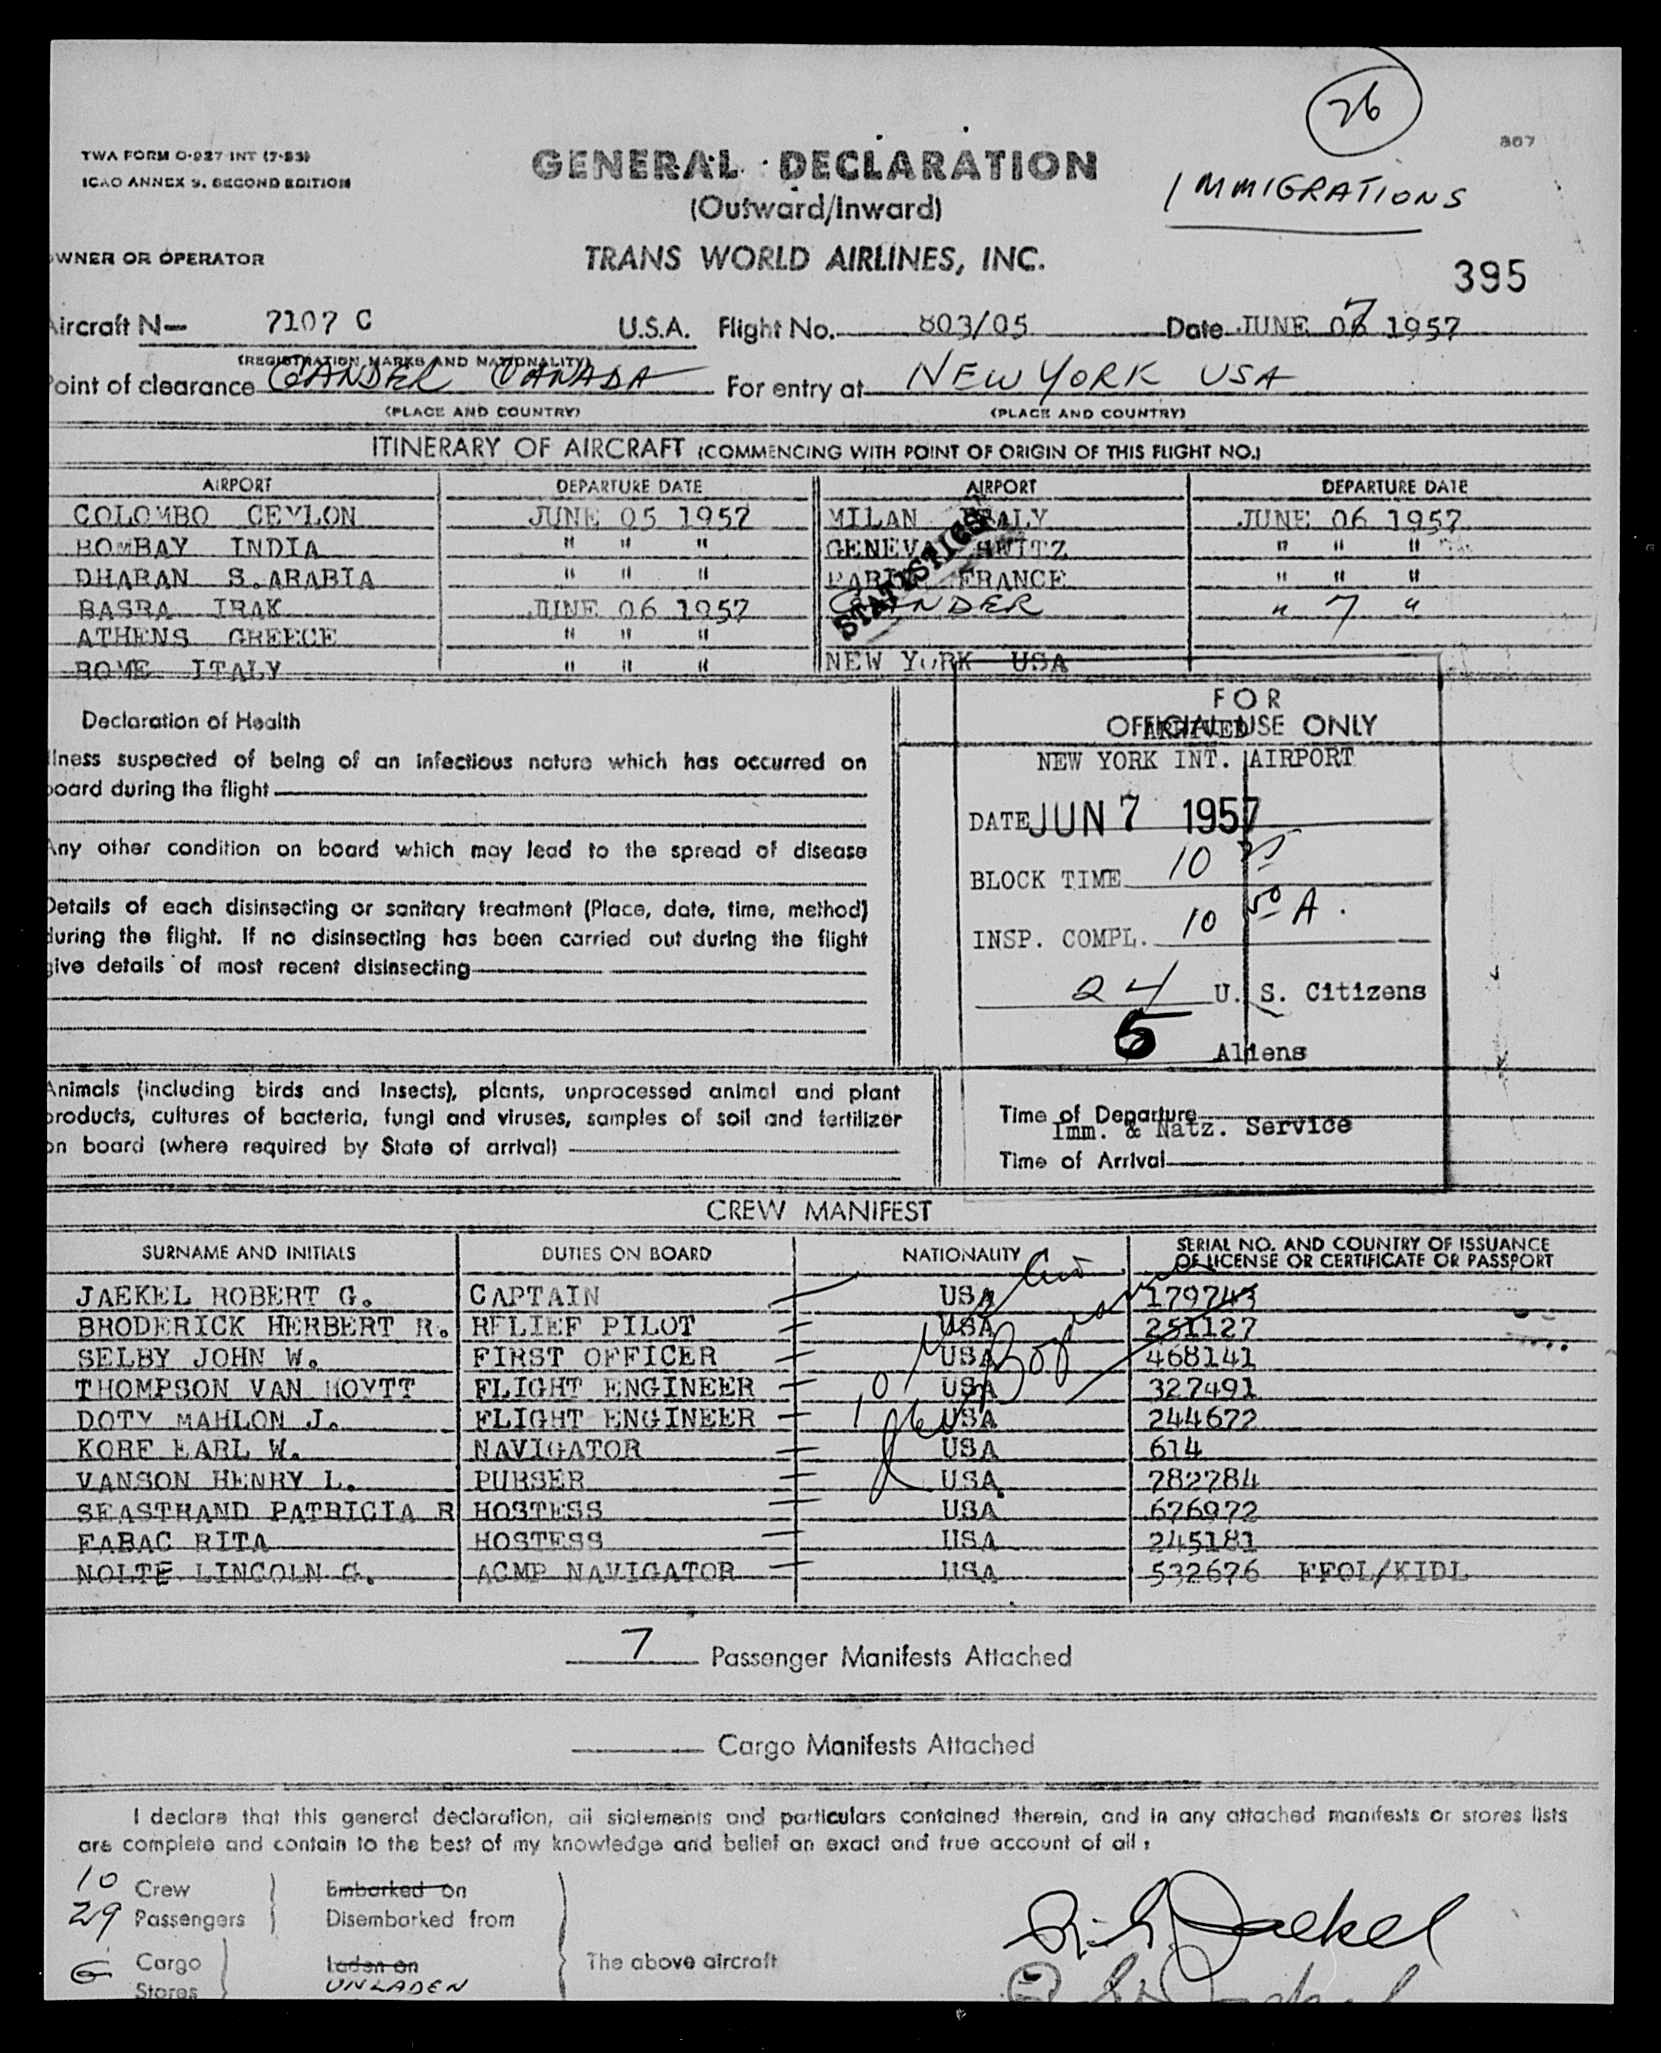 26
807
TWA FORM O-927 INT (7-53)
ICAO ANNEX 9, SECOND EDITION
GENERAL DECLARATION
(Outward/Inward)
IMMIGRATIONS
WNER OR OPERATOR
TRANS WORLD AIRLINES, INC.
395
ircraft N— 7107 C U.S.A. Flight No. 803/05 Date JUNE 07 1957
(REGISTRATION MARKS AND NATIONALITY)
oint of clearance GANDER CANADA For entry at NEW YORK USA
(PLACE AND COUNTRY) (PLACE AND COUNTRY)
ITINERARY OF AIRCRAFT (COMMENCING WITH POINT OF ORIGIN OF THIS FLIGHT NO.)
AIRPORT DEPARTURE DATE AIRPORT DEPARTURE DATE
COLOMBO CEYLON JUNE 05 1957 MILAN ITALY JUNE 06 1957
BOMBAY INDIA " " " GENEVA SWITZ " " "
DHARAN S.ARABIA " " " PARIS FRANCE " " "
BASRA IRAK JUNE 06 1957 GANDER " 7 "
ATHENS GREECE " " "
ROME ITALY " " " NEW YORK USA
STATISTICS
FOR
Declaration of Health OFFICIAL USE ONLY
ARRIVED
llness suspected of being of an infectious nature which has occurred on
oard during the flight
NEW YORK INT. AIRPORT
DATE JUN 7 1957
ny other condition on board which may lead to the spread of disease
BLOCK TIME 10
Details of each disinsecting or sanitary treatment (Place, date, time, method)
during the flight. If no disinsecting has been carried out during the flight
give details of most recent disinsecting
INSP. COMPL. 10 50 A.
24 U. S. Citizens
5 Aliens
Animals (including birds and Insects), plants, unprocessed animal and plant
products, cultures of bacteria, fungi and viruses, samples of soil and fertilizer
on board (where required by State of arrival)
Time of Departure
Imm. & Natz. Service
Time of Arrival
CREW MANIFEST
SURNAME AND INITIALS DUTIES ON BOARD NATIONALITY SERIAL NO. AND COUNTRY OF ISSUANCE
OF LICENSE OR CERTIFICATE OR PASSPORT
JAEKEL ROBERT G. CAPTAIN USA 179743
BRODERICK HERBERT R. RELIEF PILOT USA 251127
SELBY JOHN W. FIRST OFFICER USA 468141
THOMPSON VAN HOYTT FLIGHT ENGINEER USA 327491
DOTY MAHLON J. FLIGHT ENGINEER USA 244672
KORF EARL W. NAVIGATOR USA 614
VANSON HENRY L. PURSER USA 782784
SEASTRAND PATRICIA R HOSTESS USA 676972
FABAC RITA HOSTESS USA 245181
NOLTE LINCOLN G. ACMP NAVIGATOR USA 532676 FFOL/KIDL
7 Passenger Manifests Attached
Cargo Manifests Attached
I declare that this general declaration, all statements and particulars contained therein, and in any attached manifests or stores lists
are complete and contain to the best of my knowledge and belief an exact and true account of all:
10 Crew Embarked on
29 Passengers Disembarked from
Cargo Laden on The above aircraft
Stores UNLADEN
R. G. Jaekel